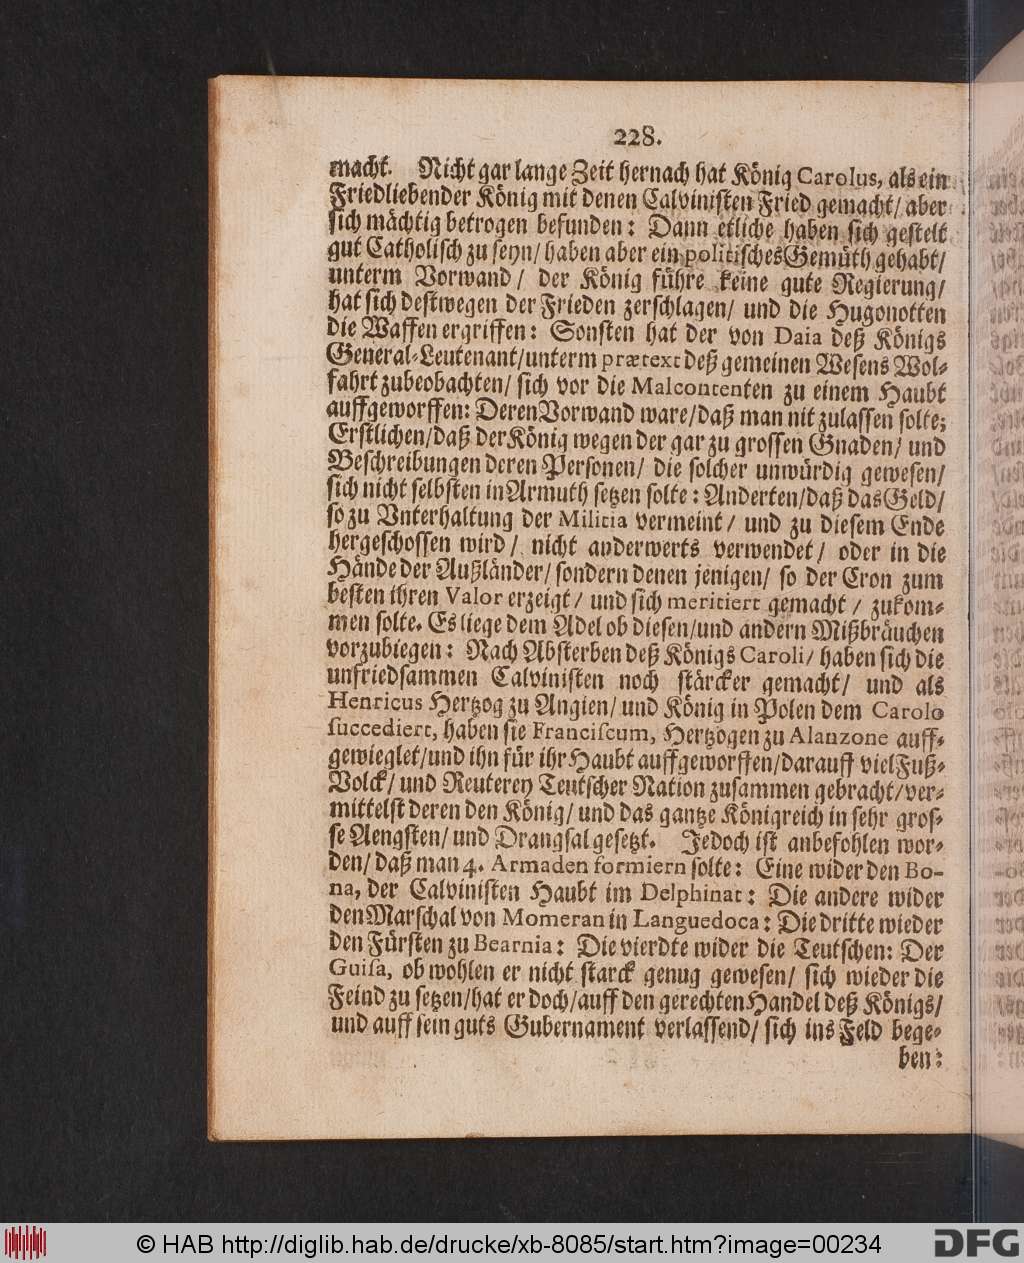 228.
macht. Nicht gar lange Zeit hernach hat König Carolus, als ein
Friedliebender König mit denen Calvinisten Fried gemacht/ aber
sich mächtig betrogen befunden: Dann etliche haben sich gestelt
gut Catholisch zu seyn/ haben aber ein politisches Gemüth gehabt/
unterm Vorwand/ der König führe keine gute Regierung/
hat sich destwegen der Frieden zerschlagen/ und die Hugonotten
die Waffen ergriffen: Sonsten hat der von Daia deß Königs
General-Leutenant/ unterm prætext deß gemeinen Wesens Wol-
fahrt zubeobachten/ sich vor die Malcontenten zu einem Haubt
auffgeworffen: Deren Vorwand ware/ daß man nit zulassen solte;
Erstlichen/ daß der König wegen der gar zu grossen Gnaden/ und
Beschreibungen deren Personen/ die solcher unwürdig gewesen/
sich nicht selbsten in Armuth setzen solte: Anderten/ daß das Geld/
so zu Vnterhaltung der Militia vermeint/ und zu diesem Ende
hergeschossen wird/ nicht anderwerts verwendet/ oder in die
Hände der Außländer/ sondern denen jenigen/ so der Cron zum
besten ihren Valor erzeigt/ und sich meritiert gemacht/ zukom-
men solte. Es liege dem Adel ob diesen/ und andern Mißbräuchen
vorzubiegen: Nach Absterben deß Königs Caroli/ haben sich die
unfriedsammen Calvinisten noch stärcker gemacht/ und als
Henricus Hertzog zu Angien/ und König in Polen dem Carolo
succediert, haben sie Franciscum, Hertzogen zu Alanzone auff-
gewieglet/ und ihn für ihr Haubt auffgeworffen/ darauff viel Fuß-
Volck/ und Reuterey Teutscher Nation zusammen gebracht/ ver-
mittelst deren den König/ und das gantze Königreich in sehr gros-
se Aengsten/ und Drangsal gesetzt. Jedoch ist anbefohlen wor-
den/ daß man 4. Armaden formiern solte: Eine wider den Bo-
na, der Calvinisten Haubt im Delphinat: Die andere wider
den Marschal von Momeran in Languedoca: Die dritte wieder
den Fürsten zu Bearnia: Die vierdte wider die Teutschen: Der
Guisa, ob wohlen er nicht starck genug gewesen/ sich wieder die
Feind zu setzen/ hat er doch/ auff den gerechten Handel deß Königs/
und auff sein guts Gubernament verlassend/ sich ins Feld bege-
ben:
© HAB http://diglib.hab.de/drucke/xb-8085/start.htm?image=00234
DFG